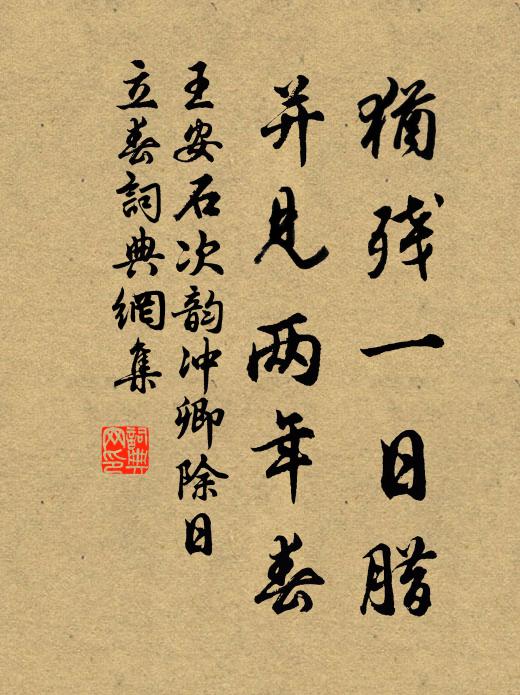 猶残一日腊
并见两年春
王安石次韵冲卿除日
立春詞典網集
詞典网印